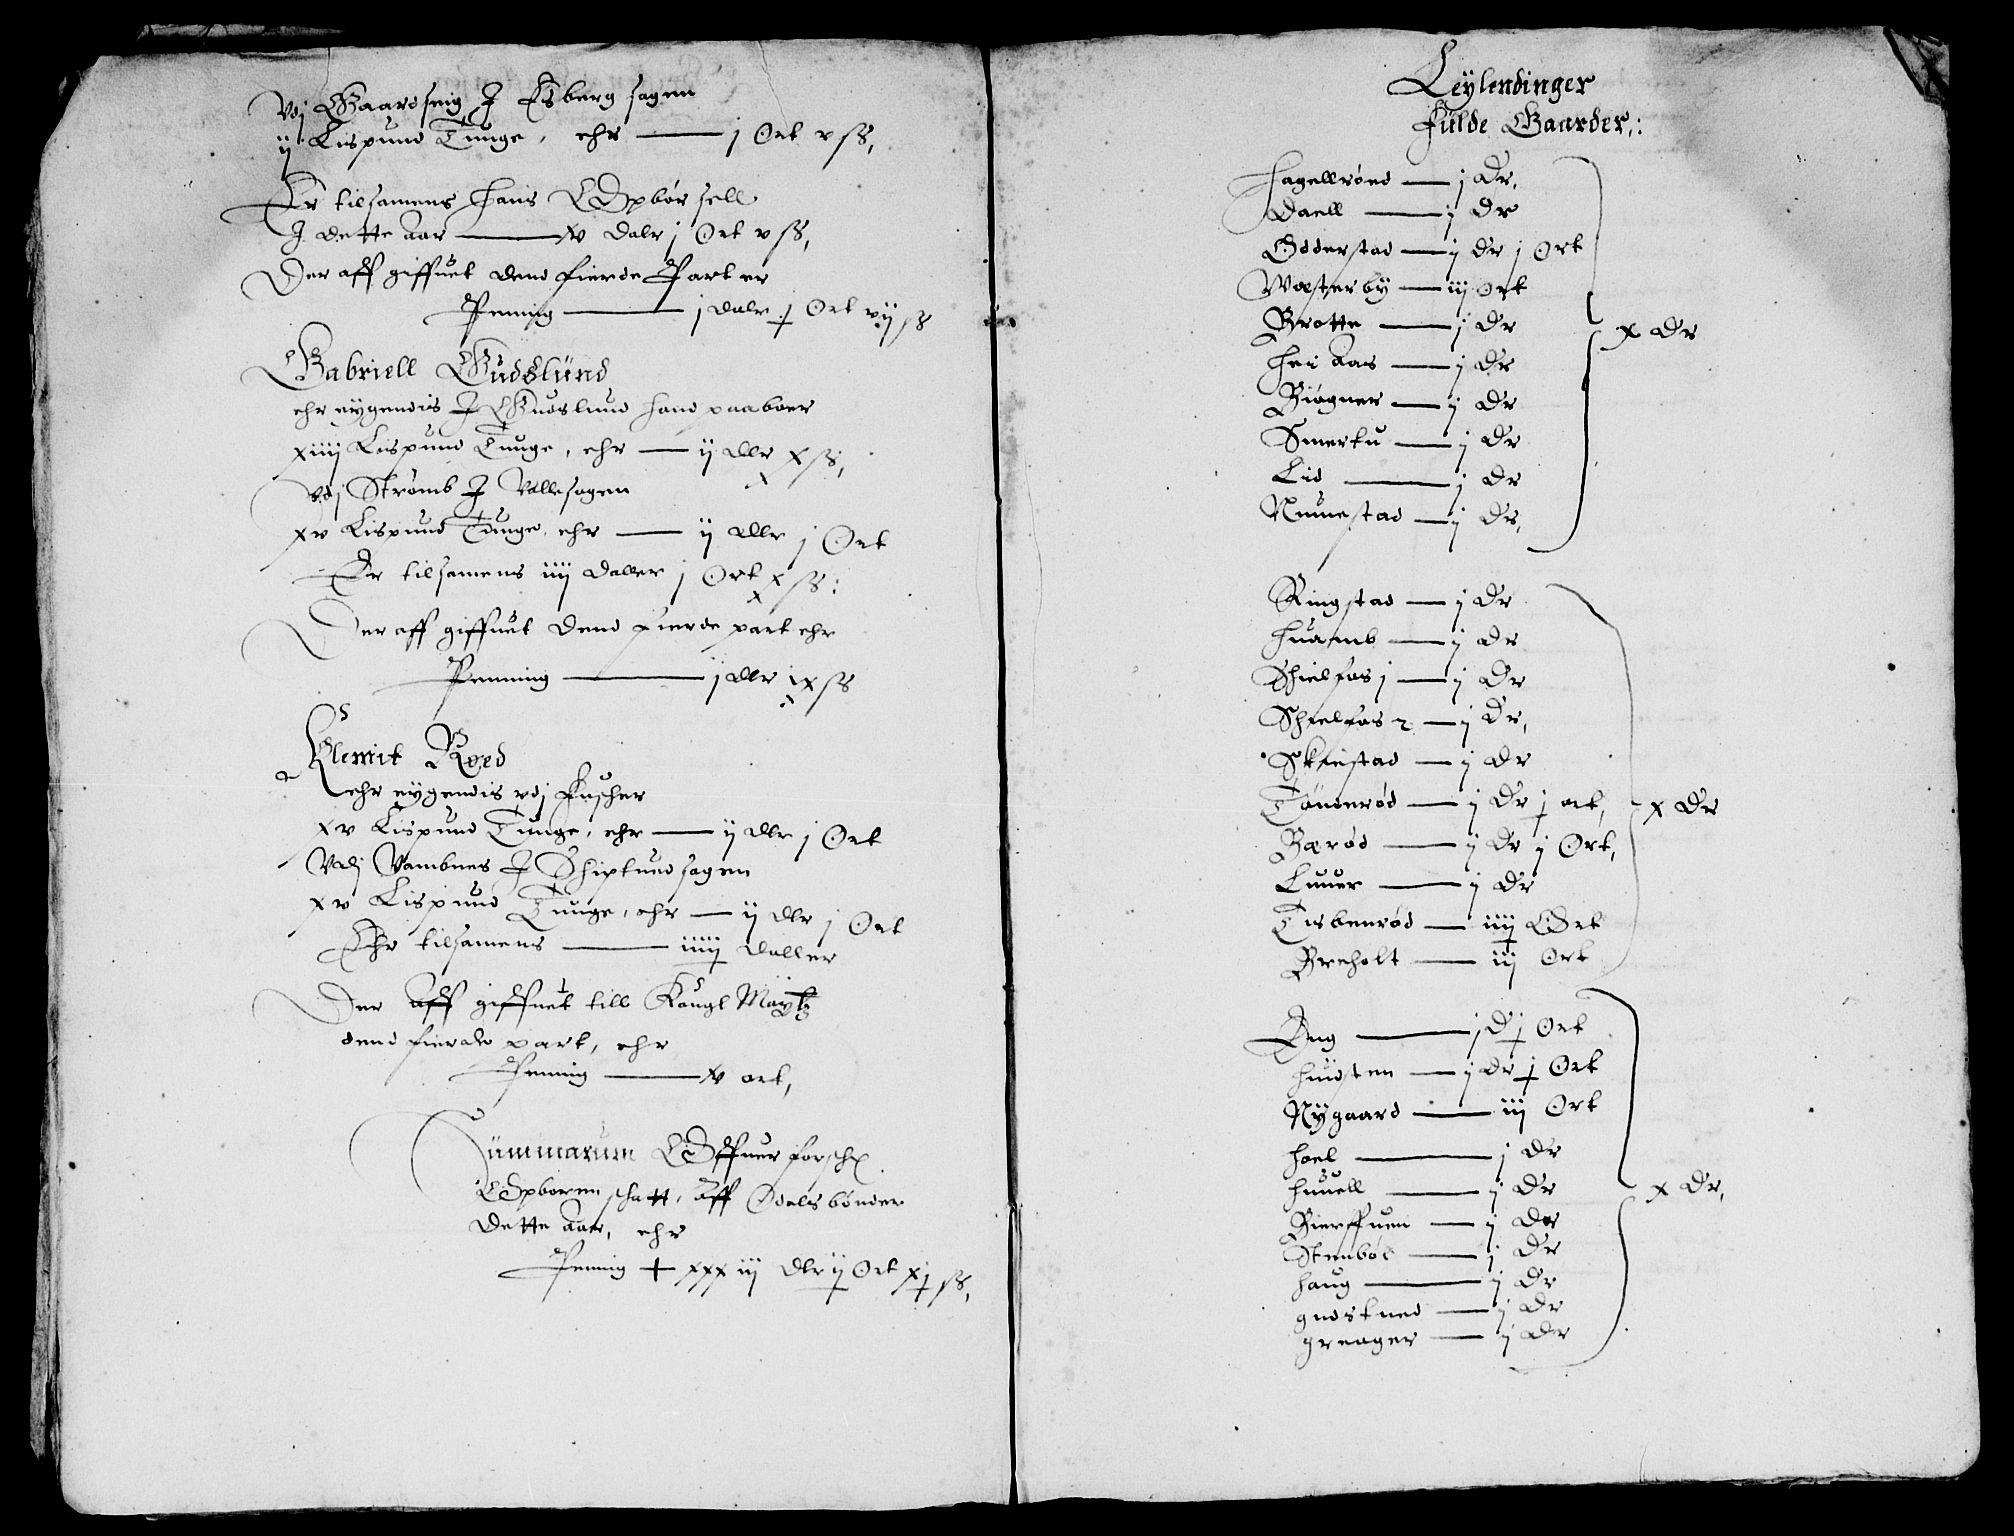 Vdj Gaardseig J Esberg sagen
ij Lispund Tunge, ehr — j Ort v ß,
Er tilsamens hans Opbørsell
J dette Aar — xv dalr j Ort v ß,
Der aff giffuet dend fierde Part er
Penning — j dalr j Ort vij ß
Gabriell Gudslund
ehr eygendis J Gudslund hand paaboer
xiiij Lispund Tunge, ehr — ij dlr x ß,
Vdj Strømb J Valle sagen
xv Lispund Tunge, ehr — ij dlr j Ort
Er tilsamens iiij daller j Ort x ß:
Der aff giffuet dend fierde part ehr
Penning — j dlr ix ß
Klemit Roed
ehr eygendis vdj Fuscher
xv Lispund Tunge, ehr — ij dlr j Ort
Vdj Vambnes J Shiptued sagen
xv Lispund Tunge, ehr — ij dlr j Ort
Ehr tilsamens — iiiij daller
Der aff giffuet till Kongl Maytz
dend fierde part, ehr
Penning — v ort,
Summarum Offuer
Opboren schatt, aff Odelsbønder
dette Aar, ehr
Penning + xxxiij dlr ij Ort xj ß,
Leylendinger
Fulde Gaarder:
Hagellrøed — j Dr,
Daell — j Dr
Odderstad — j Dr j Ort
Westerby — iij Ort
Brotte — j Dr
Hei Aas — j Dr
x Dr
Biøgner — j Dr
Smertu — j Dr
Lid — j Dr
Numestad — j Dr,
Ringstad — j Dr
Huamb — j Dr
Shielfos 1 — j Dr
Shielfos 2 — j Dr,
Skiestad — j Dr
Tønnerød — j Dr j ort,
x Dr
Bærød — j Dr j Ort,
Luuer — j Dr
Tisbenrød — iiij Ort
Breholt — iij Ort
Eng — j D j Ort
Huusten — j Dr j Ort
Nygaard — iij Ort
Hoel — j Dr
Huuell — j Dr
x Dr,
Bierffuen — j Dr
Stenbøl — j Dr
Haug — j Dr
gudstued — j Dr
greager — j Dr